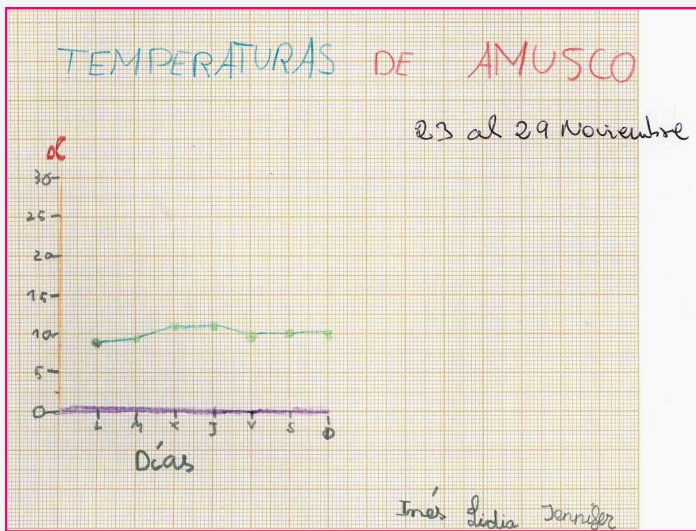 TEMPERATURAS DE AMUSCO
23 al 29 Noviembre
ºC
30
25
20
15
10
5
0
L M X J V S D
Días
Inés Lidia Jennifer